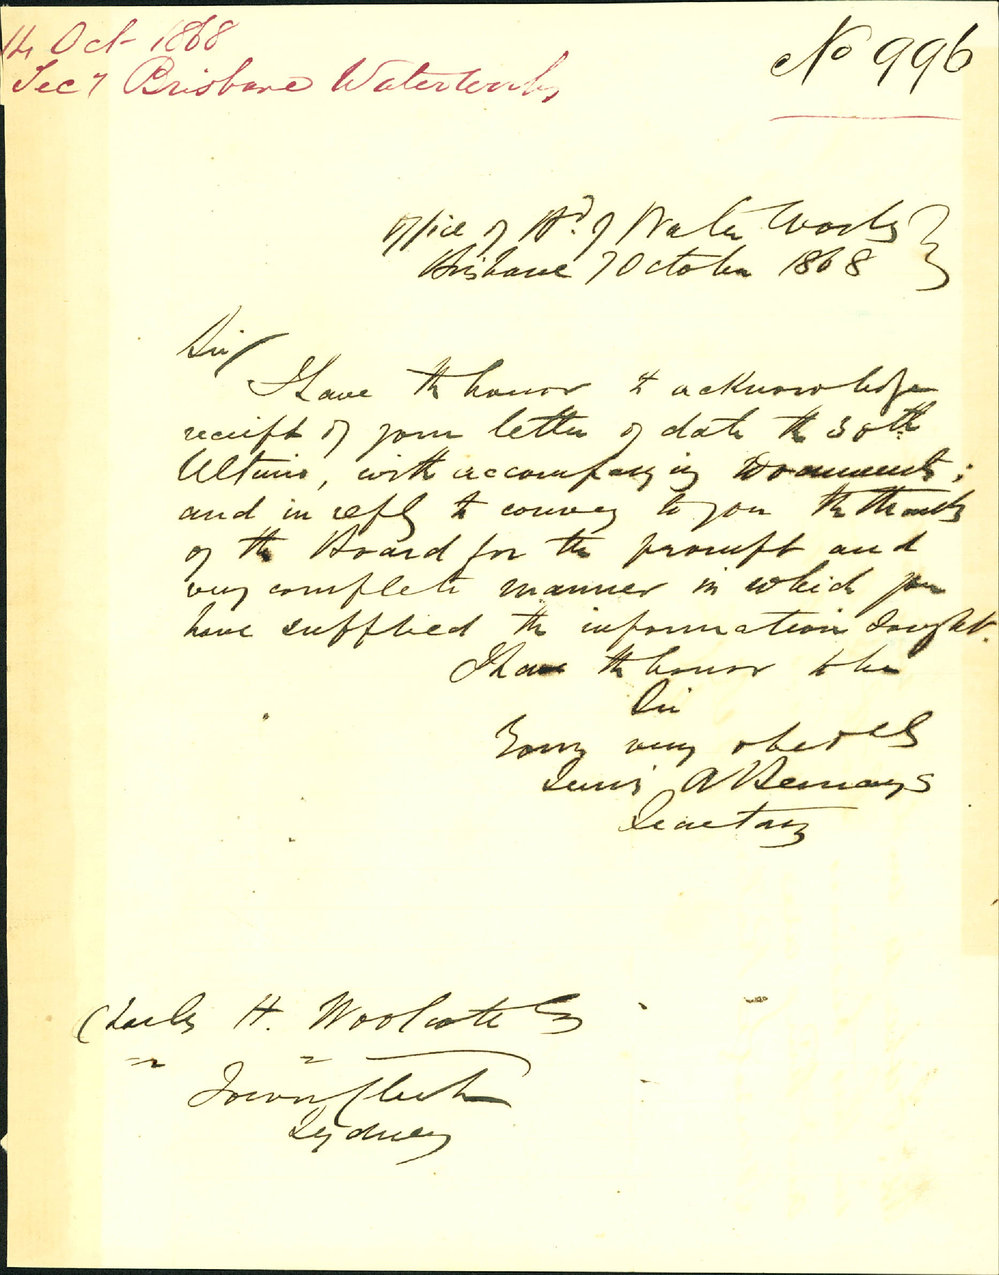 14 Oct 1868
Secy Brisbane Waterworks
No 996
Office of Bd. of Water Works
Brisbane 7 October 1868
Sir/
I have the honor to acknowledge
receipt of your letter of date the 30th
Ultimo, with accompanying Documents;
and in reply to convey to you the thanks
of the Board for the prompt and
very complete manner in which you
have supplied the information sought.
I have the honor to be
Sir
Your very obedt
Lewis A Bernays
Secretary
Charles H. Woolcott Esq
Town Clerk
Sydney